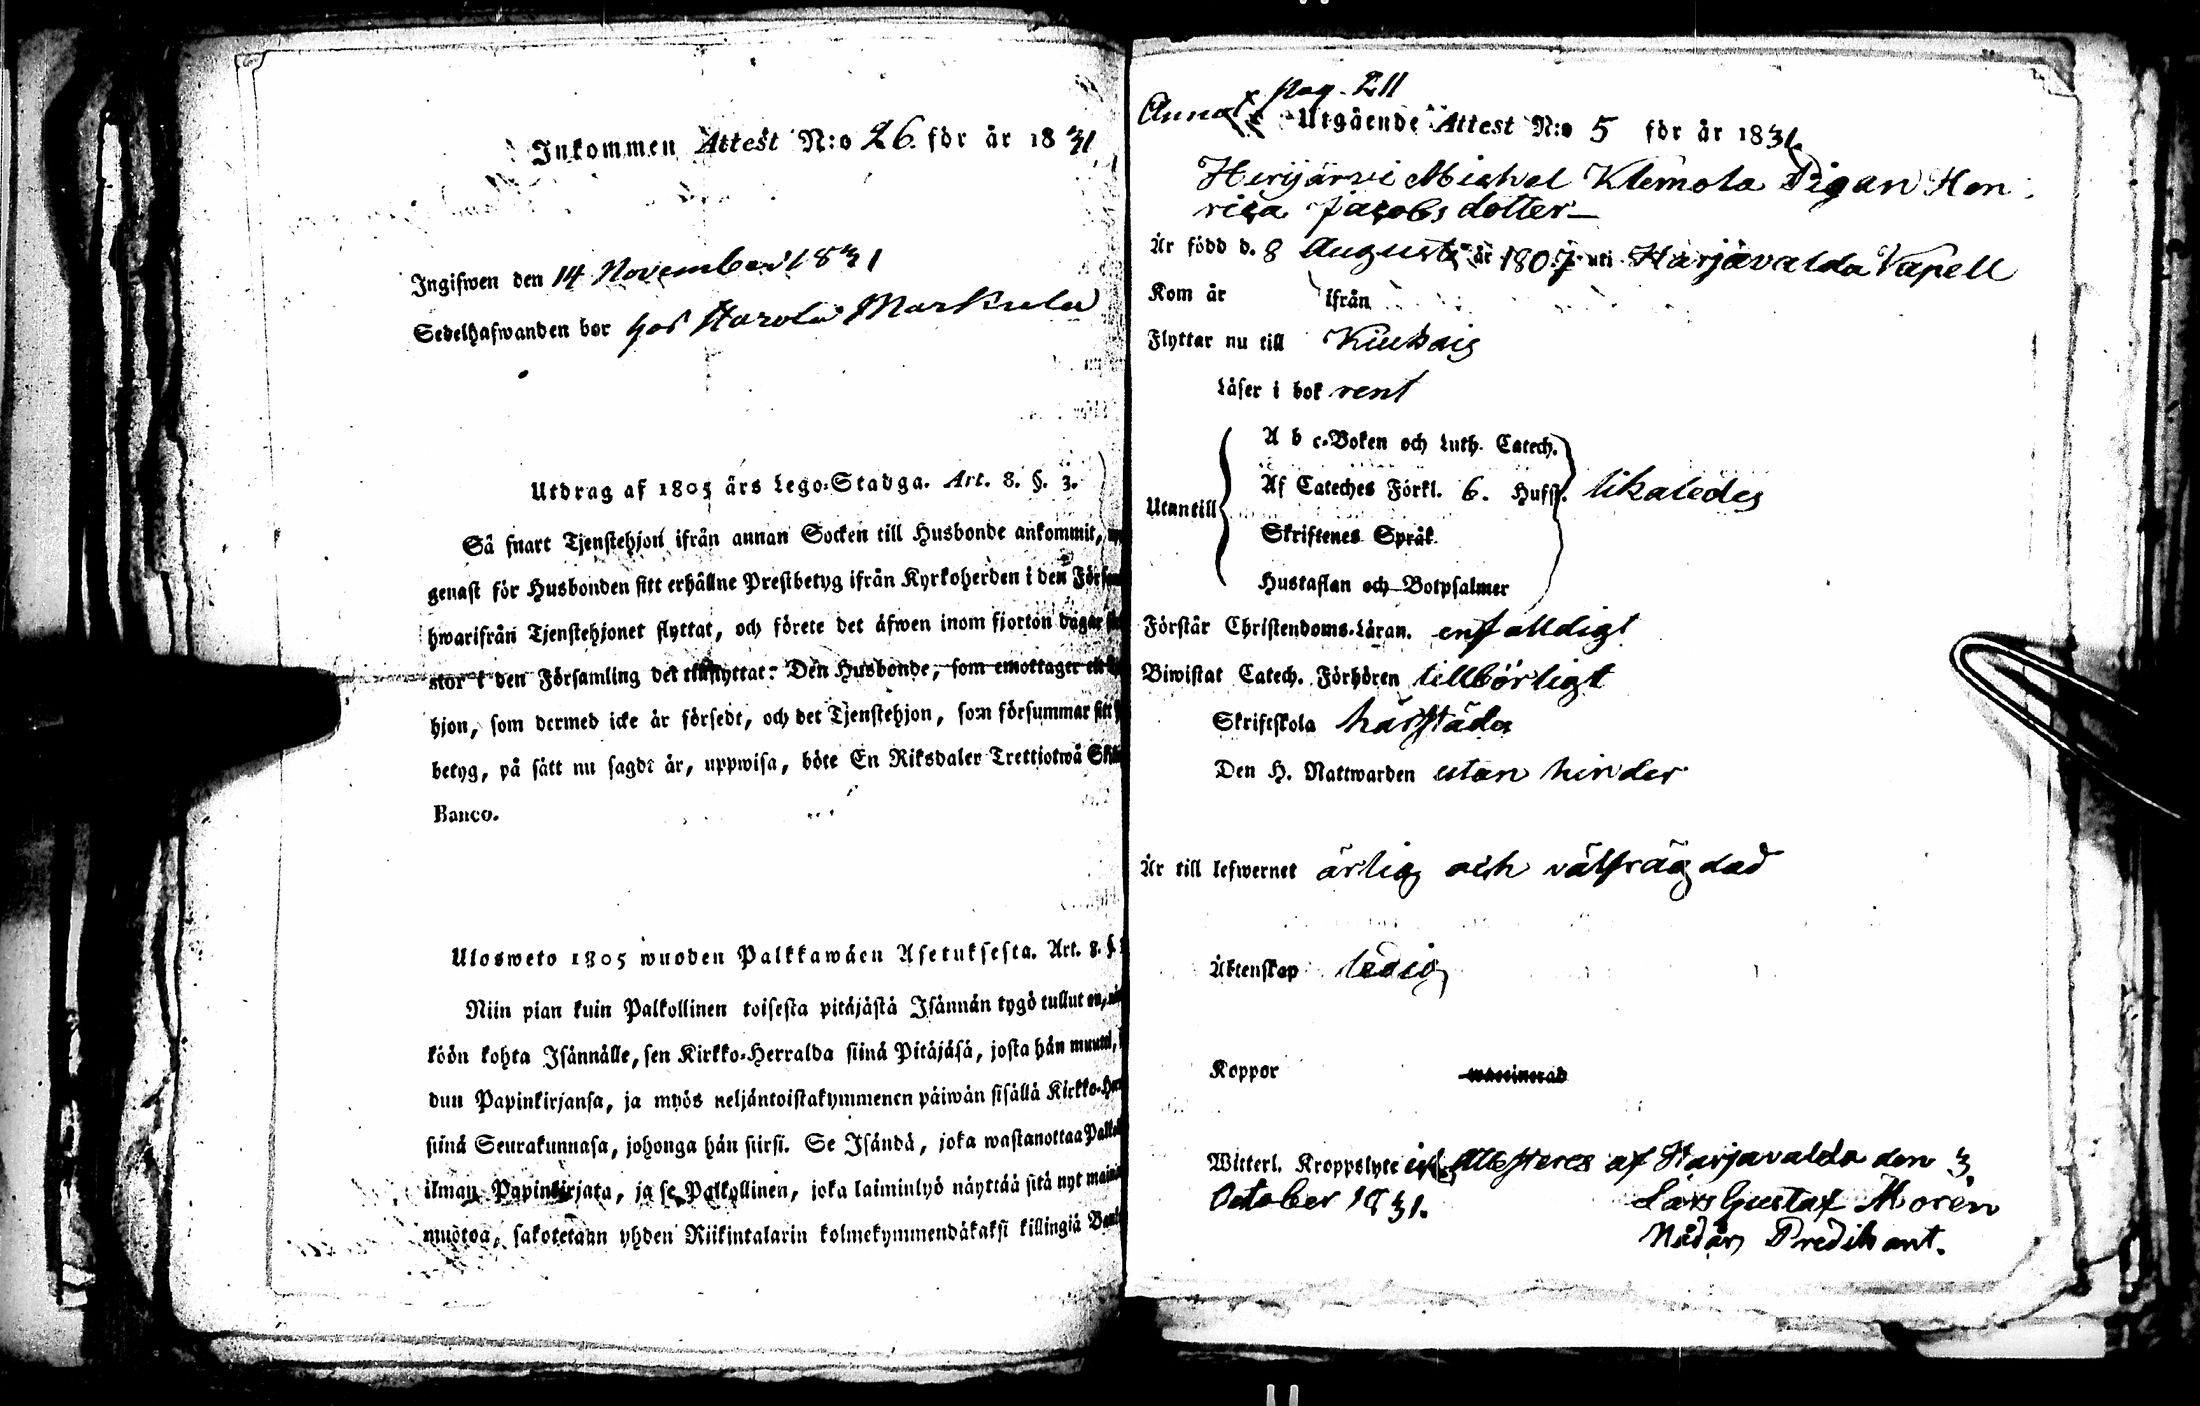 Inkommen Attest N:o 26. för år 1831
Ingifwen den 14 November 1831
Sedelhafwanden bor hos Harola Markula
Utdrag af 1805 års Lego-Stadga. Art. 8. §. 3.
Så snart Tjenstehjon ifrån annan Socken till Husbonde ankommit,
genast för Husbonden sitt erhållne Prestbetyg ifrån Kyrkoherden i den
hwarifrån Tjenstehjonet flyttat, och förete det äfwen inom fjorton dagar
stor i den Församling det tillflyttat: Den Husbonde, som emottager
hjon, som dermed icke är försedt, och det Tjenstehjon, som försummar sitt
betyg, på sätt nu sagdt är, uppwisa, böte En Riksdaler Trettiotwå
Banco.
Ulosweto 1805 wuoden Palkkawäen Asetuksesta. Art. 8. §.
Niin pian kuin Palkollinen toisesta pitäjästä Isännän tygö tullut on,
köön kohta Isännälle, sen Kirkko-Herralda siinä Pitäjäsä, josta hän
dun Papinkirjansa, ja myös neljäntoistakymmenen päiwän sisällä
siinä Seurakunnasa, johonga hän siirsi. Se Isändä, joka wastanottaa
ilman Papinkirjata, ja se Palkollinen, joka laiminlyö näyttää sitä nyt
muotoa, sakotetaan yhden Riikintalarin kolmekymmendäkaksi killingiä
pag. 211
Anna
Utgående Attest N:o 5 för år 1831.
Hirijärvi Michel Klemola Pigan Hen
rica Jacobsdotter
Är född d. 8 Augusti år 1807 uti Harjavalda Capell
Kom år ifrån
Flyttar nu till Kiukais
Läser i bok rent
A b c-Boken och Luth. Catech.
Af Cateches Förkl. 6. Hufst. likaledes
Utantill
Skriftenes Språk
Hustaflan och Botpsalmer
Förstår Christendoms-Läran. enfalldigt
Biwistat Catech. Förhören tillbörligt
Skriftskola härstädes
Den H. Nattwarden utan hinder
Är till lefwernet ärlig och välfrägdad
Äktenskap ledig
Koppor waccinerad
Witterl. Kroppslyte ej Attesteres af Harjavalda den 3
October 1831. Lars Gustaf Morén
Nådår Predikant.